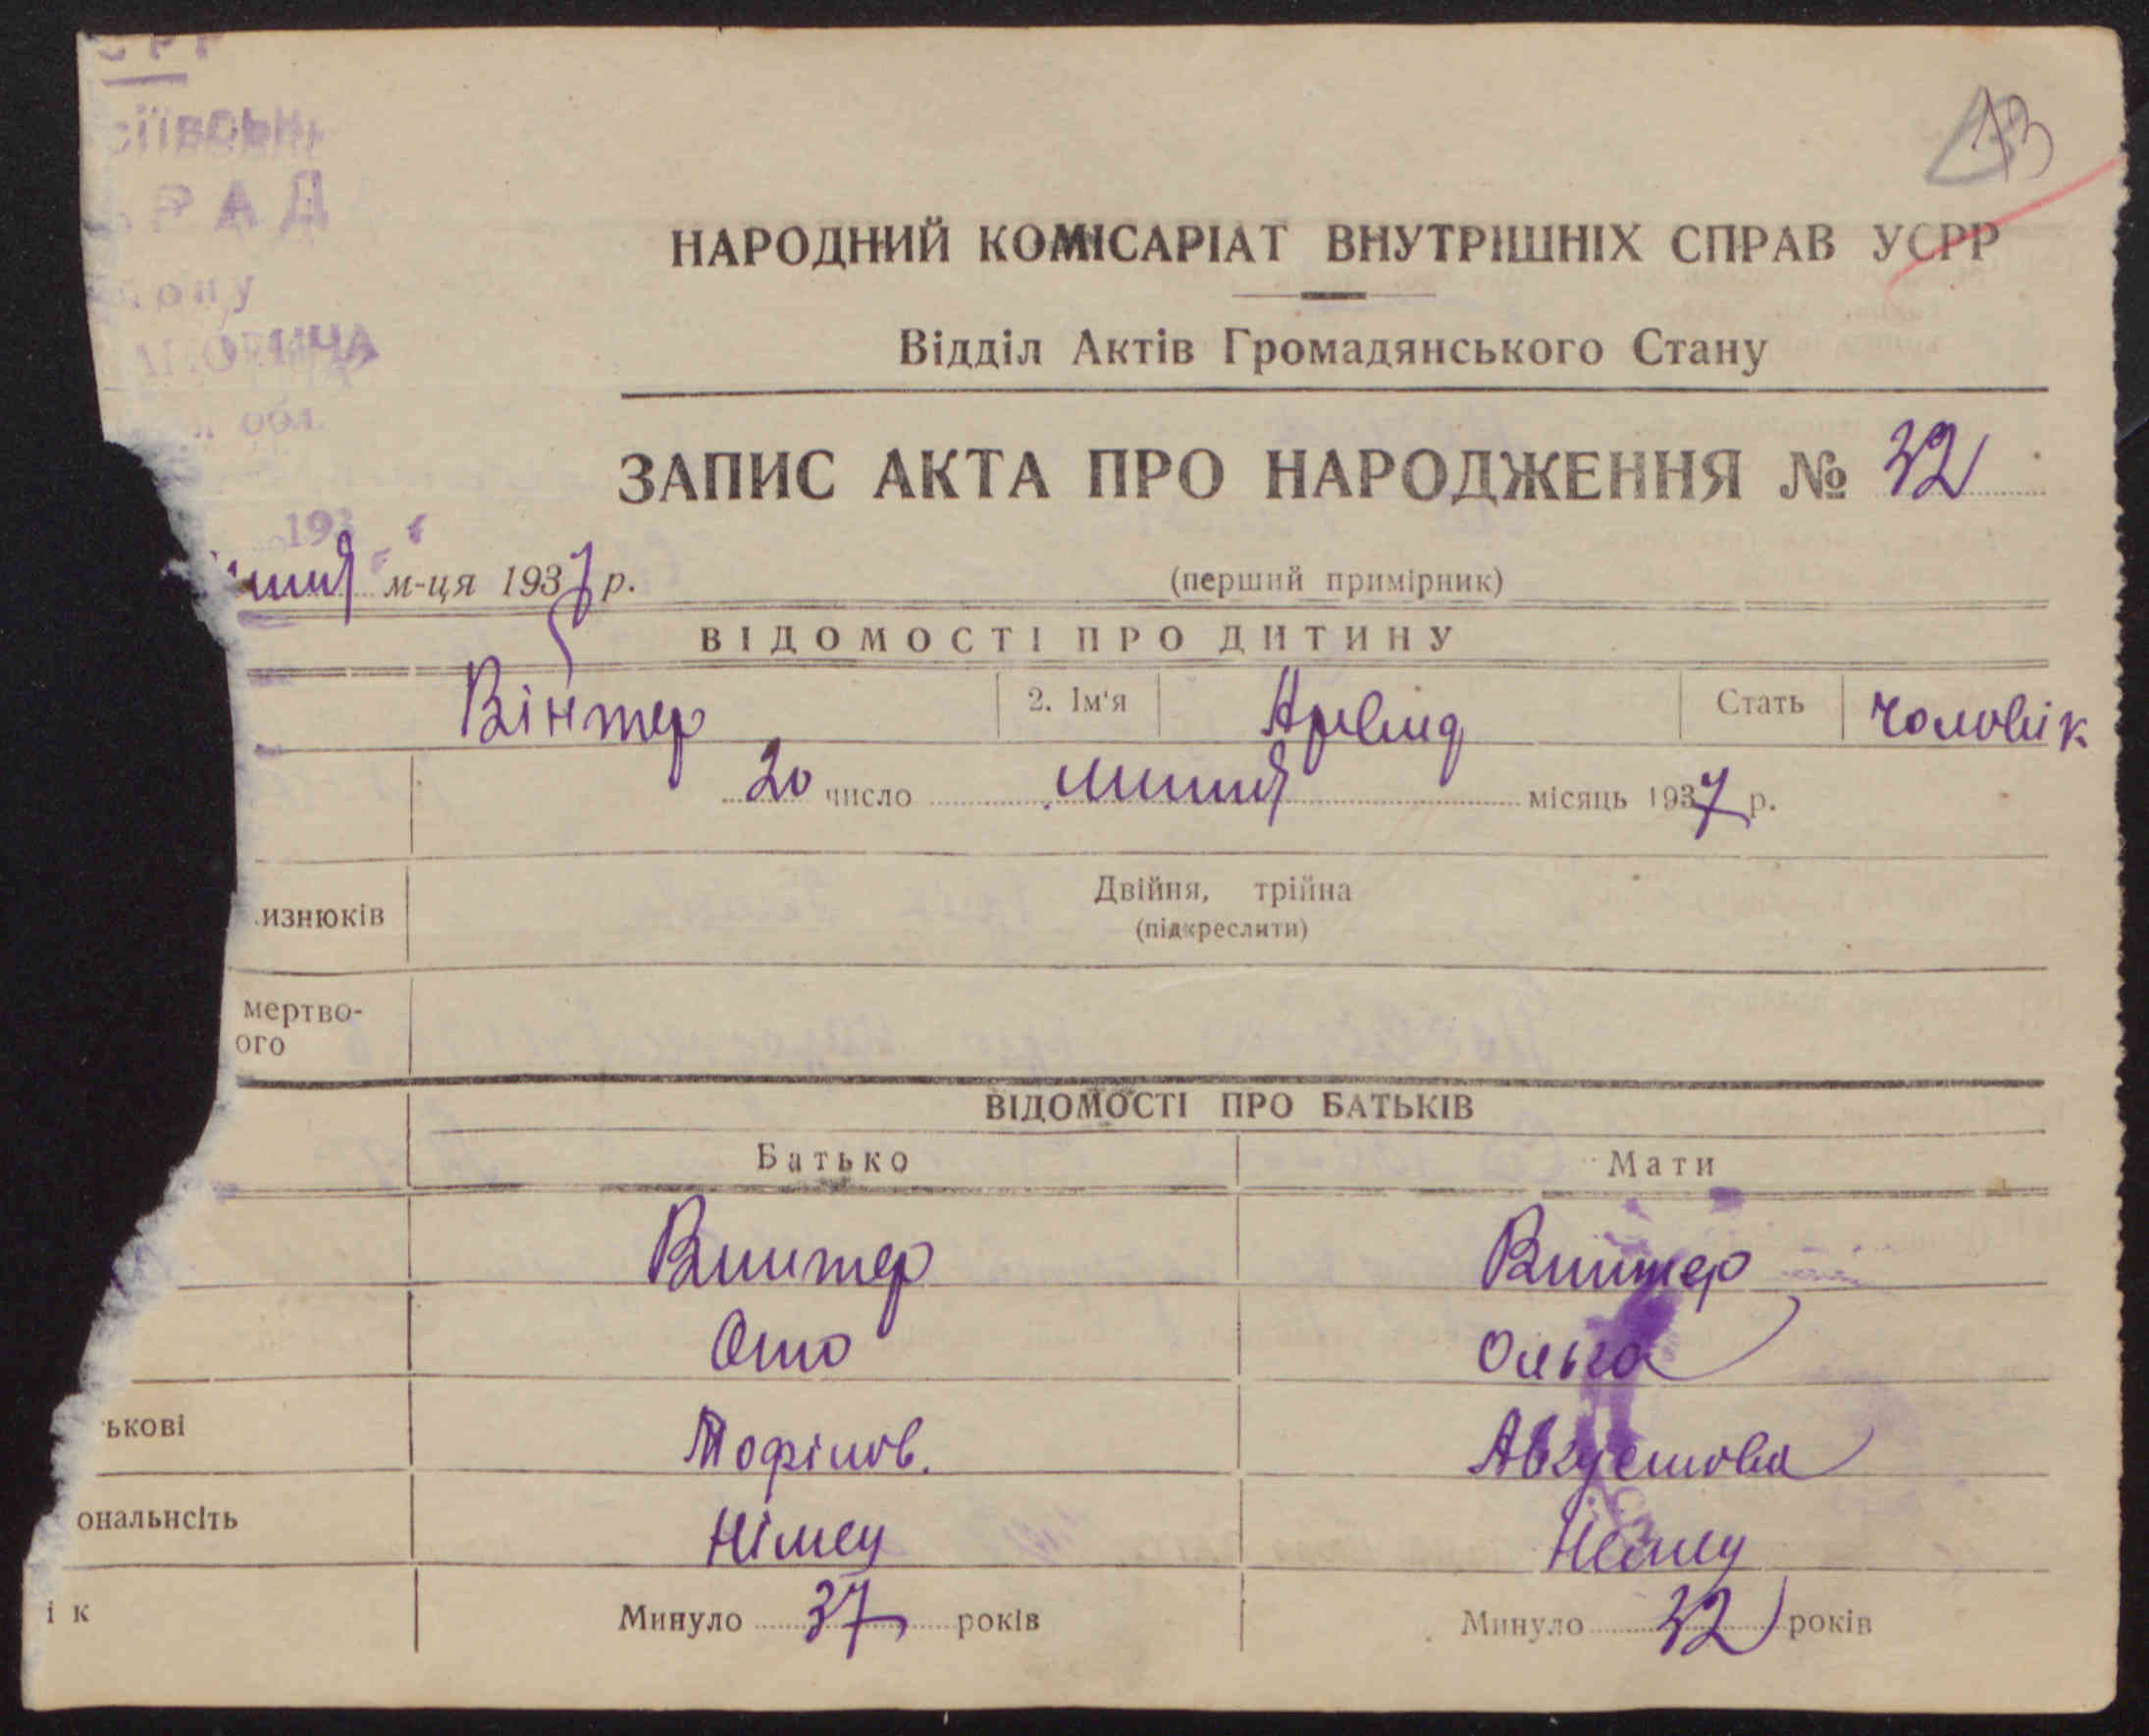 13
РАД
обл
НАРОДНИЙ КОМІСАРІАТ ВНУТРІШНІХ СПРАВ УСРР
Відділ Актів Громадянського Стану
ЗАПИС АКТА ПРО НАРОДЖЕННЯ № 32
193
м-ця 1937 р.
(перший примірник)
ВІДОМОСТІ ПРО ДИТИНУ
Вінтер 2. Ім'я Арвид Стать чоловік
20 число липня місяць 1937 р.
изнюків
Двійня, трійна
(підкреслити)
мертво-
ого
ВІДОМОСТІ ПРО БАТЬКІВ
Батько Мати
Винтер Винтер
Ото Ольга
ькові Августова
ональнсіть Німец Немец
і к Минуло 37 років Минуло 32 років